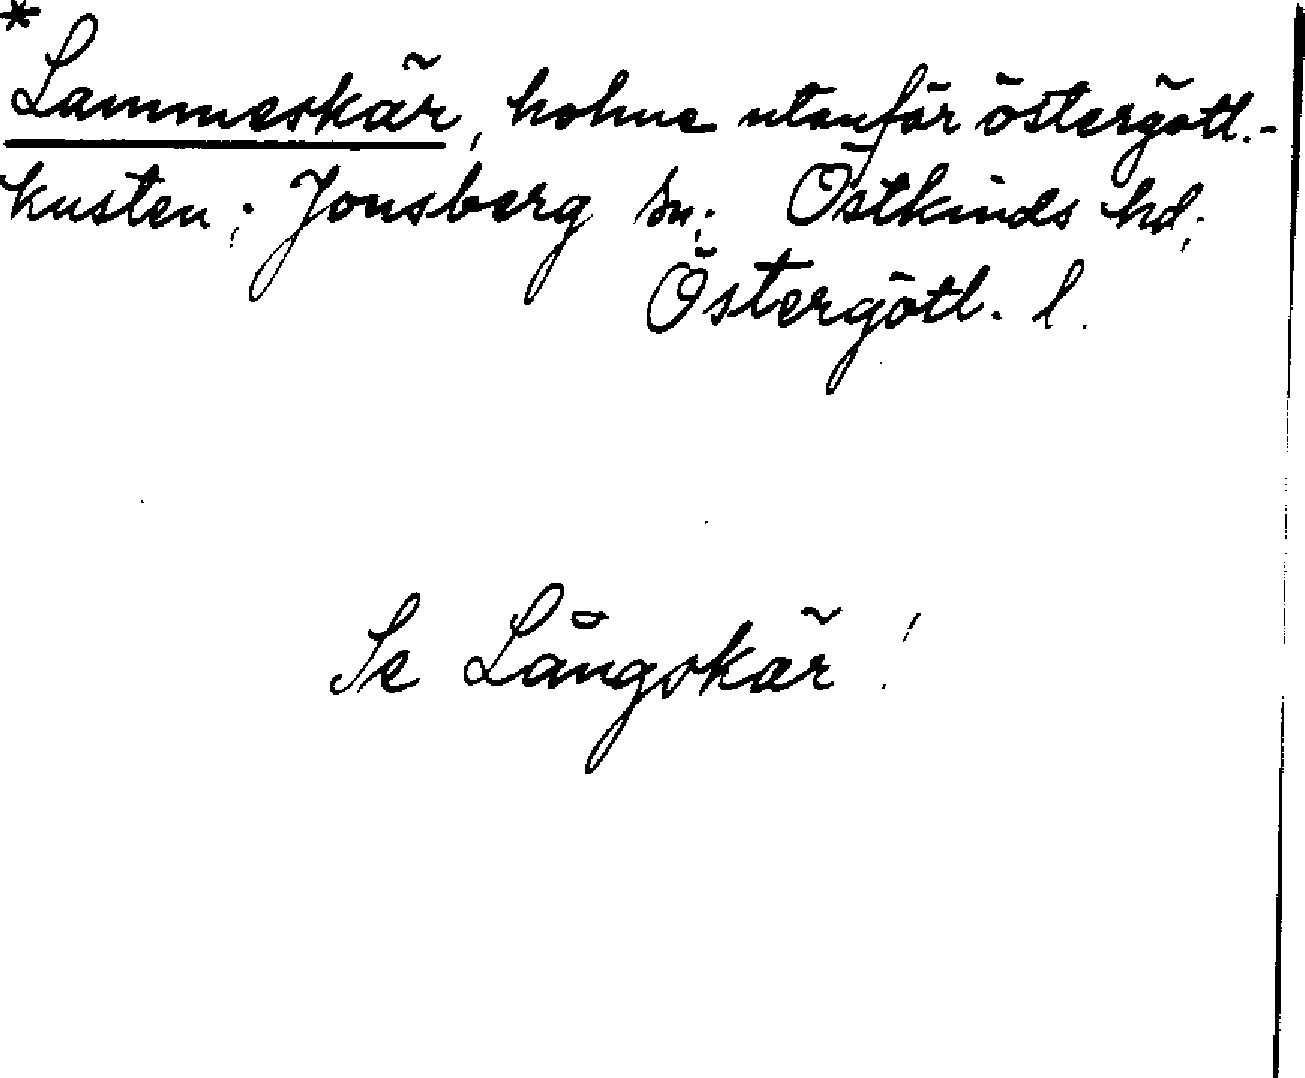 *
Lammeskär, holme utanför östergötl.-
kusten; Jonsberg sn; Östkinds hd;
Östergötl. l.
Se Långskär!